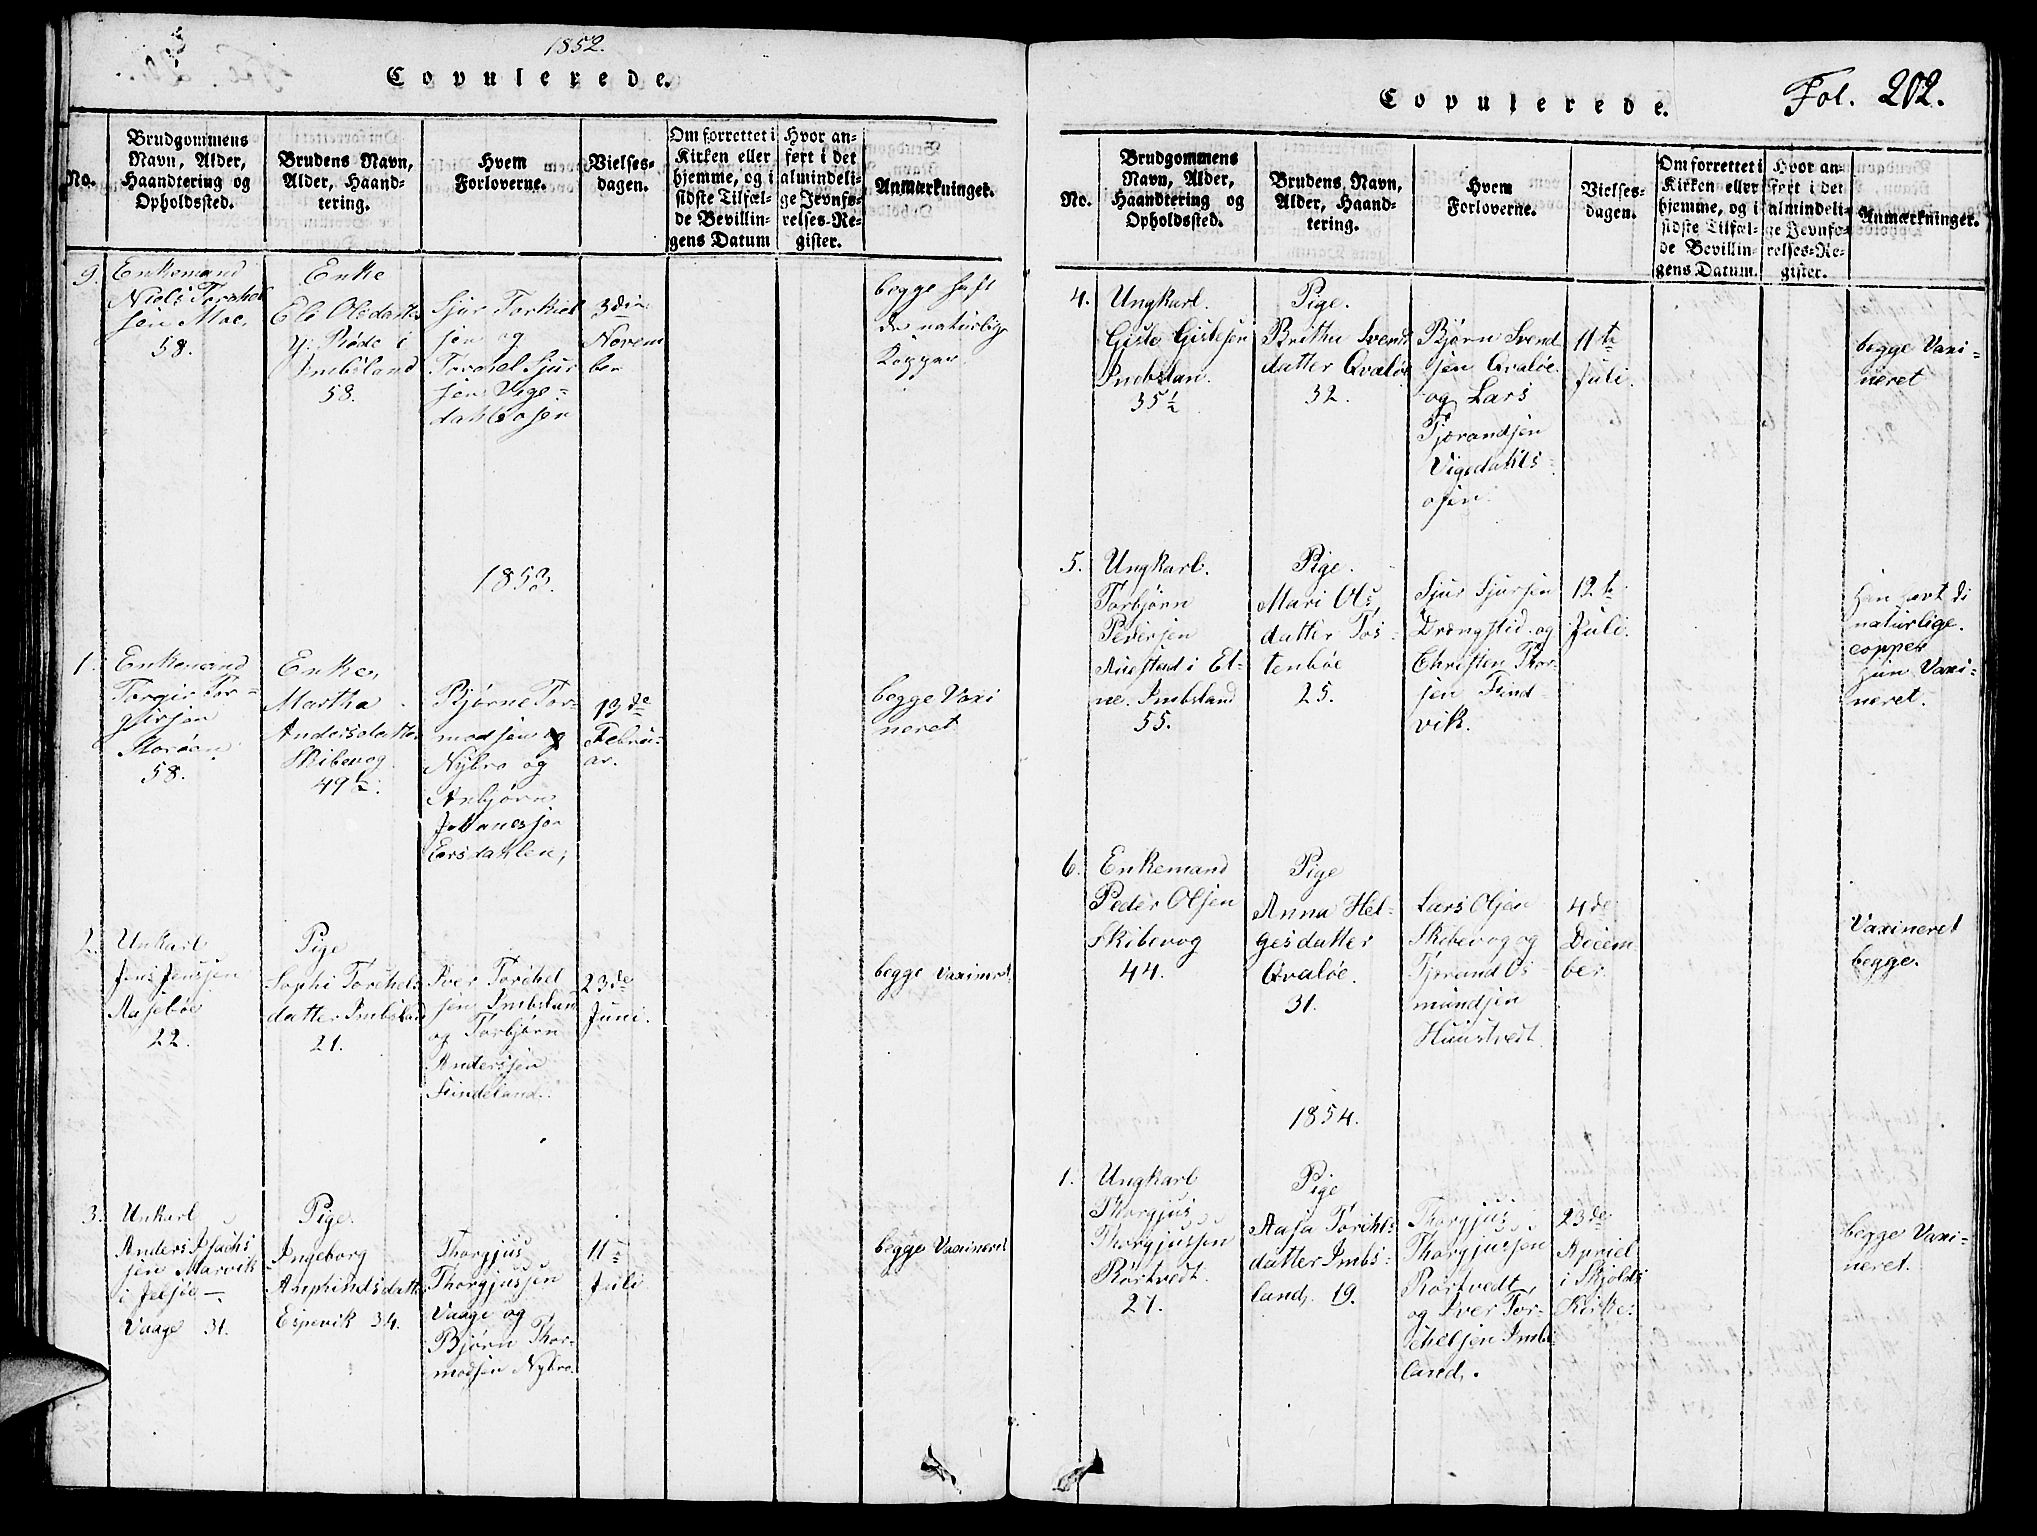 1852.
Copulerede.
No.
Brudgommens
Navn, Alder,
Haandtering og
Opholdssted.
Brudens Navn,
Alder, Haand-
tering.
Hvem
Forloverne.
Vielses-
dagen.
Om forrettet i
Kirken eller
hjemme, og i
sidste Tilfæl-
de Bevillin-
gens Datum
Hvor an-
ført i det
almindeli-
ge Jevnfø-
relses-Re-
gister.
Anmærkninger.
9.
Enkemand
Niels Torchel
sen Moe.
58.
Enke
Eli Olsdatter
Røde i
Imbsland
58.
Sjur Torkiel
sen og
Sjur
sen Vige-
dahlsosen
3die
Novem
ber
begge haft
de naturlige
Kopper
1853.
1.
Enkemand
Torgir Tor-
girsen
58.
Enke,
Martha
Andersdatter
Skibevog.
49½.
Bjørne Tor-
modsen
Nybro og
Anbjørn
Johanessen
Eersdahlen;
19de
Februi-
ar.
begge Vaxi
neret
2.
Unkarl
Jens Jenssen
Aasebøe
22.
Pige
Sophi Torchels
datter Imbsland
21.
Iver Torchel
sen Imbsland
og Torbjørn
Anderssen
Sindeland.
23de
Juni.
begge Vaximret
3.
Unkarl
Anders Isachs
sen Marvik
i Jelsøe —
Vaage 31.
Pige.
Ingeborg
Amphindsdatter
Espevik 34.
Thorgjus
Thorgjussen
Vaage og
Bjørn Thor-
modsen Nybro.
11te
Juli
begge Vaxineret
Copulerede.
Fol. 202.
No.
Brudgommens
Navn, Alder,
Haandtering og
Opholdssted.
Brudens Navn,
Alder, Haand-
tering.
Hvem
Forloverne.
Vielses-
dagen.
Om forrettet i
Kirken eller
hjemme, og i
sidste Tilfæl-
de Bevillin-
gens Datum.
Hvor an-
ført i det
almindeli-
ge Jevnfø-
relses-Re-
gister.
Anmærkninger.
4.
Ungkarl.
Gisle Gislesen
Imbslan.
35½
Pige.
Britha Svends
datter Qvaløe
32.
Bjørn Svend
sen Qvaløe.
og Lars
Tjørandsen
Vigedahls-
osen.
11te
Juli.
begge Vaxi-
neret
5.
Ungkarl.
Torbjørn
Pedersen
Austad i Et-
ne. Imbsland
55.
Pige.
Mari Ols
datter Tos-
tenbøe
25.
Sjur Sjursen
Drengstid og
Christen Thor-
sen Sand-
vik.
12te
Juli.
han havt di
naturlige.
copper
hun Vaxi-
neret.
6.
Enkemand
Peder Olsen
Skibevog
44.
Pige
Anna Hel-
gesdatter
Qvaløe.
31.
Lars Olsen
Skibevog og
Tjørand Os-
mundsen
Huustvedt.
4de
Decem-
ber.
Vaxineret
begge.
1854.
1.
Ungkarl
Thorgjus
Thorgjussen
Rørtvedt.
27.
Pige
Aasa Torchels
datter Imbs-
land, 19.
Thorgjus
Thorgjussen
Rørtvedt,
og Iver Tor-
chelsen Imbs
land.
23de
Apriel
i Skjolds
Kirke.
begge Vaxi-
neret.